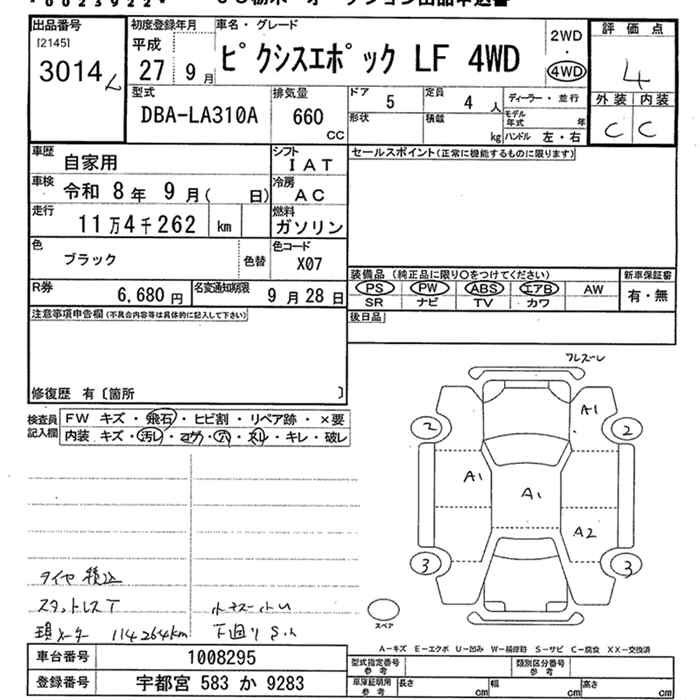 出品番号
[2145]
3014
初度登録年月
平成
27 9 月
車名・グレード
ピクシスエポック LF 4WD
2WD
・
4WD
評価点
4
外装 内装
C C
型式
DBA-LA310A
排気量
660
CC
ドア
5
定員
4 人
ディーラー・並行
形状
積載
kg
モデル年式 年
ハンドル 左・右
車歴
自家用
シフト
IAT
車検
令和 8 年 9 月( 日)
冷房
AC
走行
11 万 4 千 262 km
燃料
ガソリン
色
ブラック
色替
色コード
X07
R券
6,680 円
名変通知期限
9 月 28 日
セールスポイント(正常に機能するものに限ります)
装備品 (純正品に限り○をつけてください)
PS PW ABS エアB AW
SR ナビ TV カワ
新車保証書
有・無
後日品
注意事項申告欄(不具合内容等は具体的に記入して下さい)
修復歴 有〔箇所 〕
検査員記入欄
FW キズ・飛石・ヒビ割・リペア跡・×要
内装 キズ・汚レ・コゲ・穴・スレ・キレ・破レ
A1
2 2
A1
A1
A2
3 3
スペア
タイヤ積込
スタットレスT
現メーター 114264km
下廻りS.ル
A-キズ E-エクボ U-凹み W-補修跡 S-サビ C-腐食 XX-交換済
車台番号
1008295
登録番号
宇都宮 583 か 9283
型式指定番号
参考
類別区分番号
参考
車庫証明用
参考
長さ cm
幅 cm
高さ cm